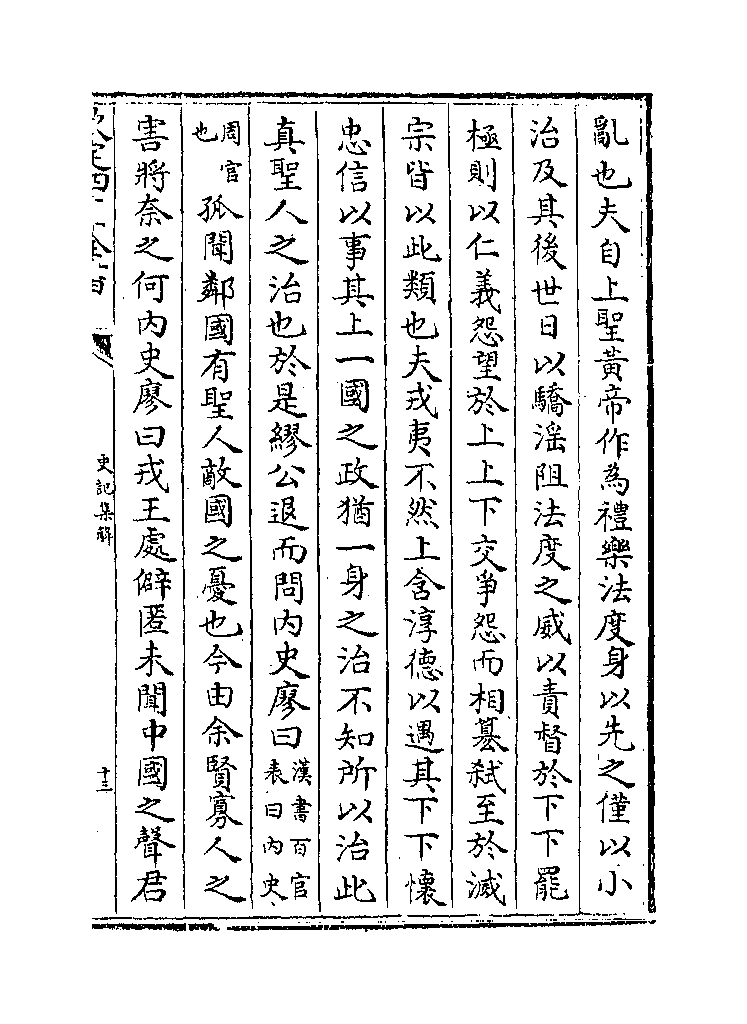 亂也夫自上聖黃帝作為禮樂法度身以先之僅以小
治及其後世日以驕滛阻法度之威以責督於下下罷
極則以仁義怨望於上上下交爭怨而相簒弑至於滅
宗皆以此類也夫戎夷不然上含淳德以遇其下下懷
忠信以事其上一國之政猶一身之治不知所以治此
真聖人之治也於是繆公退而問内史廖曰漢書百官表曰内史
周官也孤聞鄰國有聖人敵國之憂也今由余賢寡人之
害將奈之何内史廖曰戎王處僻匿未聞中國之聲君
史記集解
十三